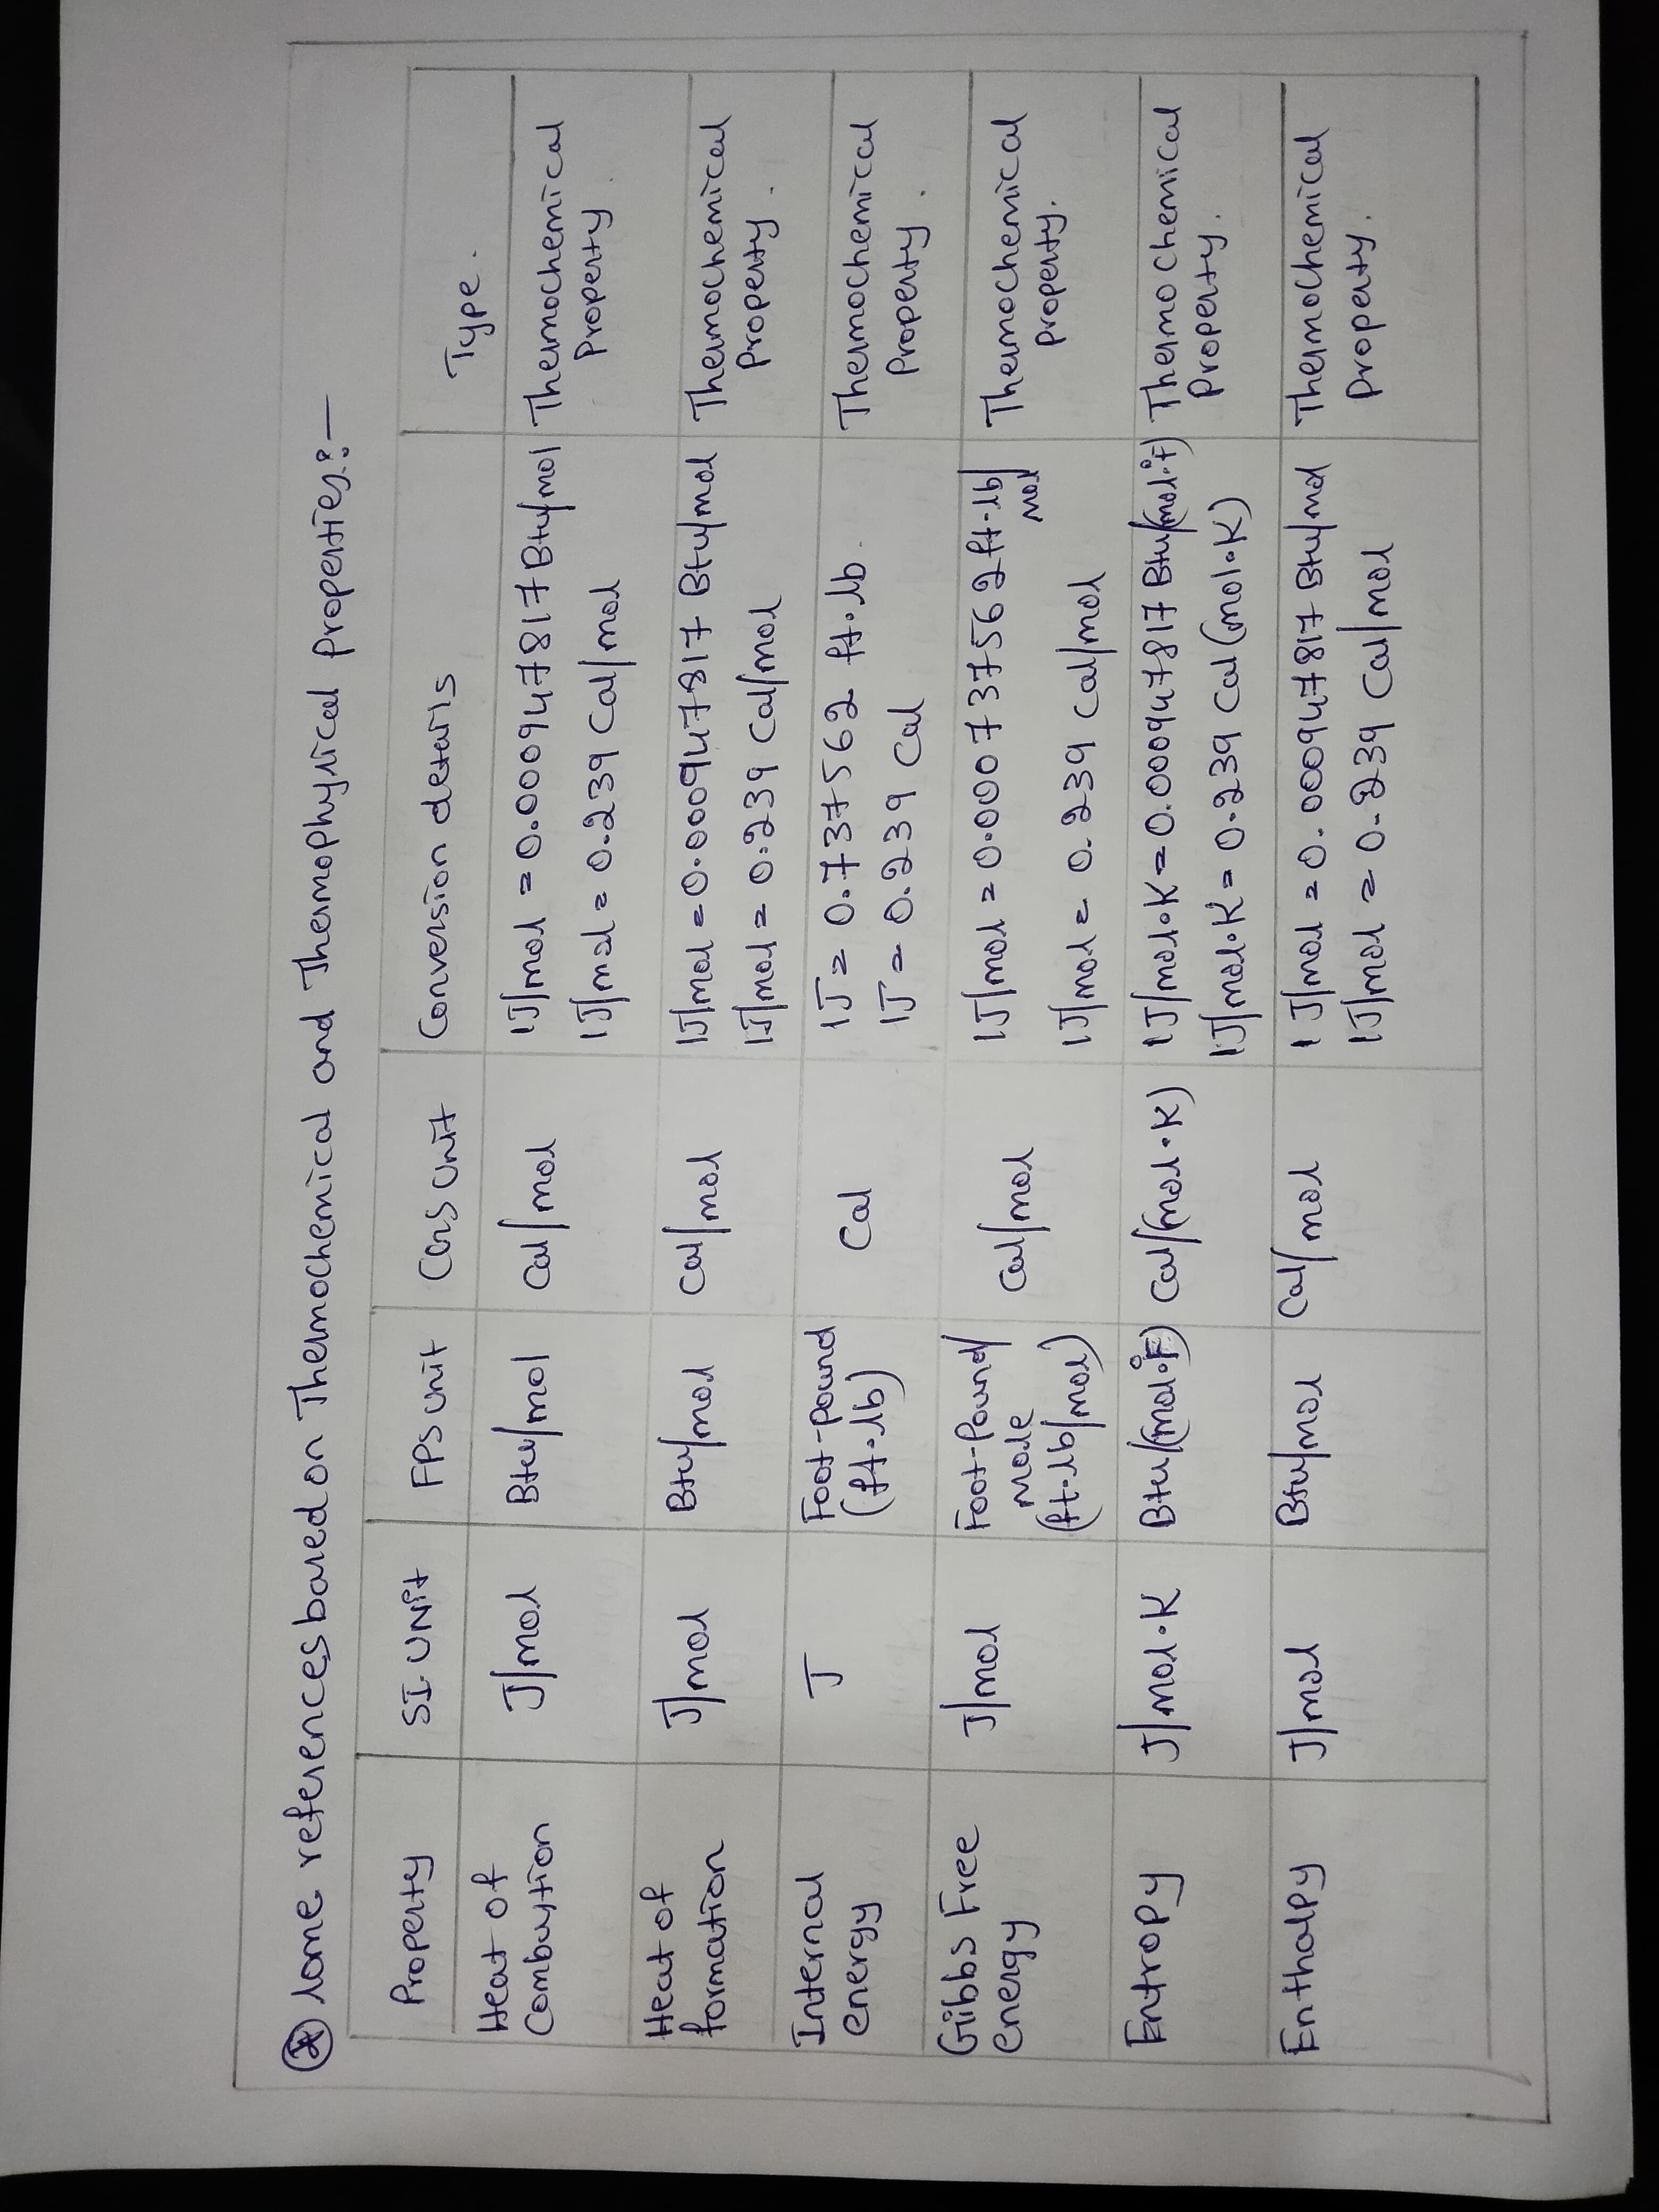 * Some references based on Thermochemical and Thermophysical properties:-
Property SI UNit FPS unit CGS unit Conversion details Type.
Heat of Combustion J/mol Btu/mol Cal/mol 1J/mol = 0.000947817 Btu/mol 1J/mol = 0.239 Cal/mol Thermochemical Property.
Heat of formation J/mol Btu/mol Cal/mol 1J/mol = 0.000947817 Btu/mol 1J/mol = 0.239 Cal/mol Thermochemical Property.
Internal energy J Foot-pound (ft.lb) Cal 1J = 0.737562 ft.lb. 1J = 0.239 Cal Thermochemical Property.
Gibbs Free energy J/mol Foot-Pound/mole (ft.lb/mol) Cal/mol 1J/mol = 0.000737562 ft.lb/mol 1J/mol = 0.239 Cal/mol Thermochemical property.
Entropy J/mol.K Btu/(mol.°F) Cal/(mol.K) 1J/mol.K = 0.000947817 Btu/(mol.°F) 1J/mol.K = 0.239 Cal(mol.K) Thermochemical Property.
Enthalpy J/mol Btu/mol Cal/mol 1J/mol = 0.000947817 Btu/mol 1J/mol = 0.239 Cal/mol Thermochemical Property.